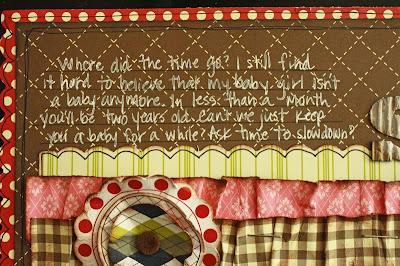 Where did the time go? I still find
it hard to believe that my baby girl isn't
a baby anymore. In less than a month
you'll be two years old. Can't we just keep
you a baby for a while? Ask time to slowdown?